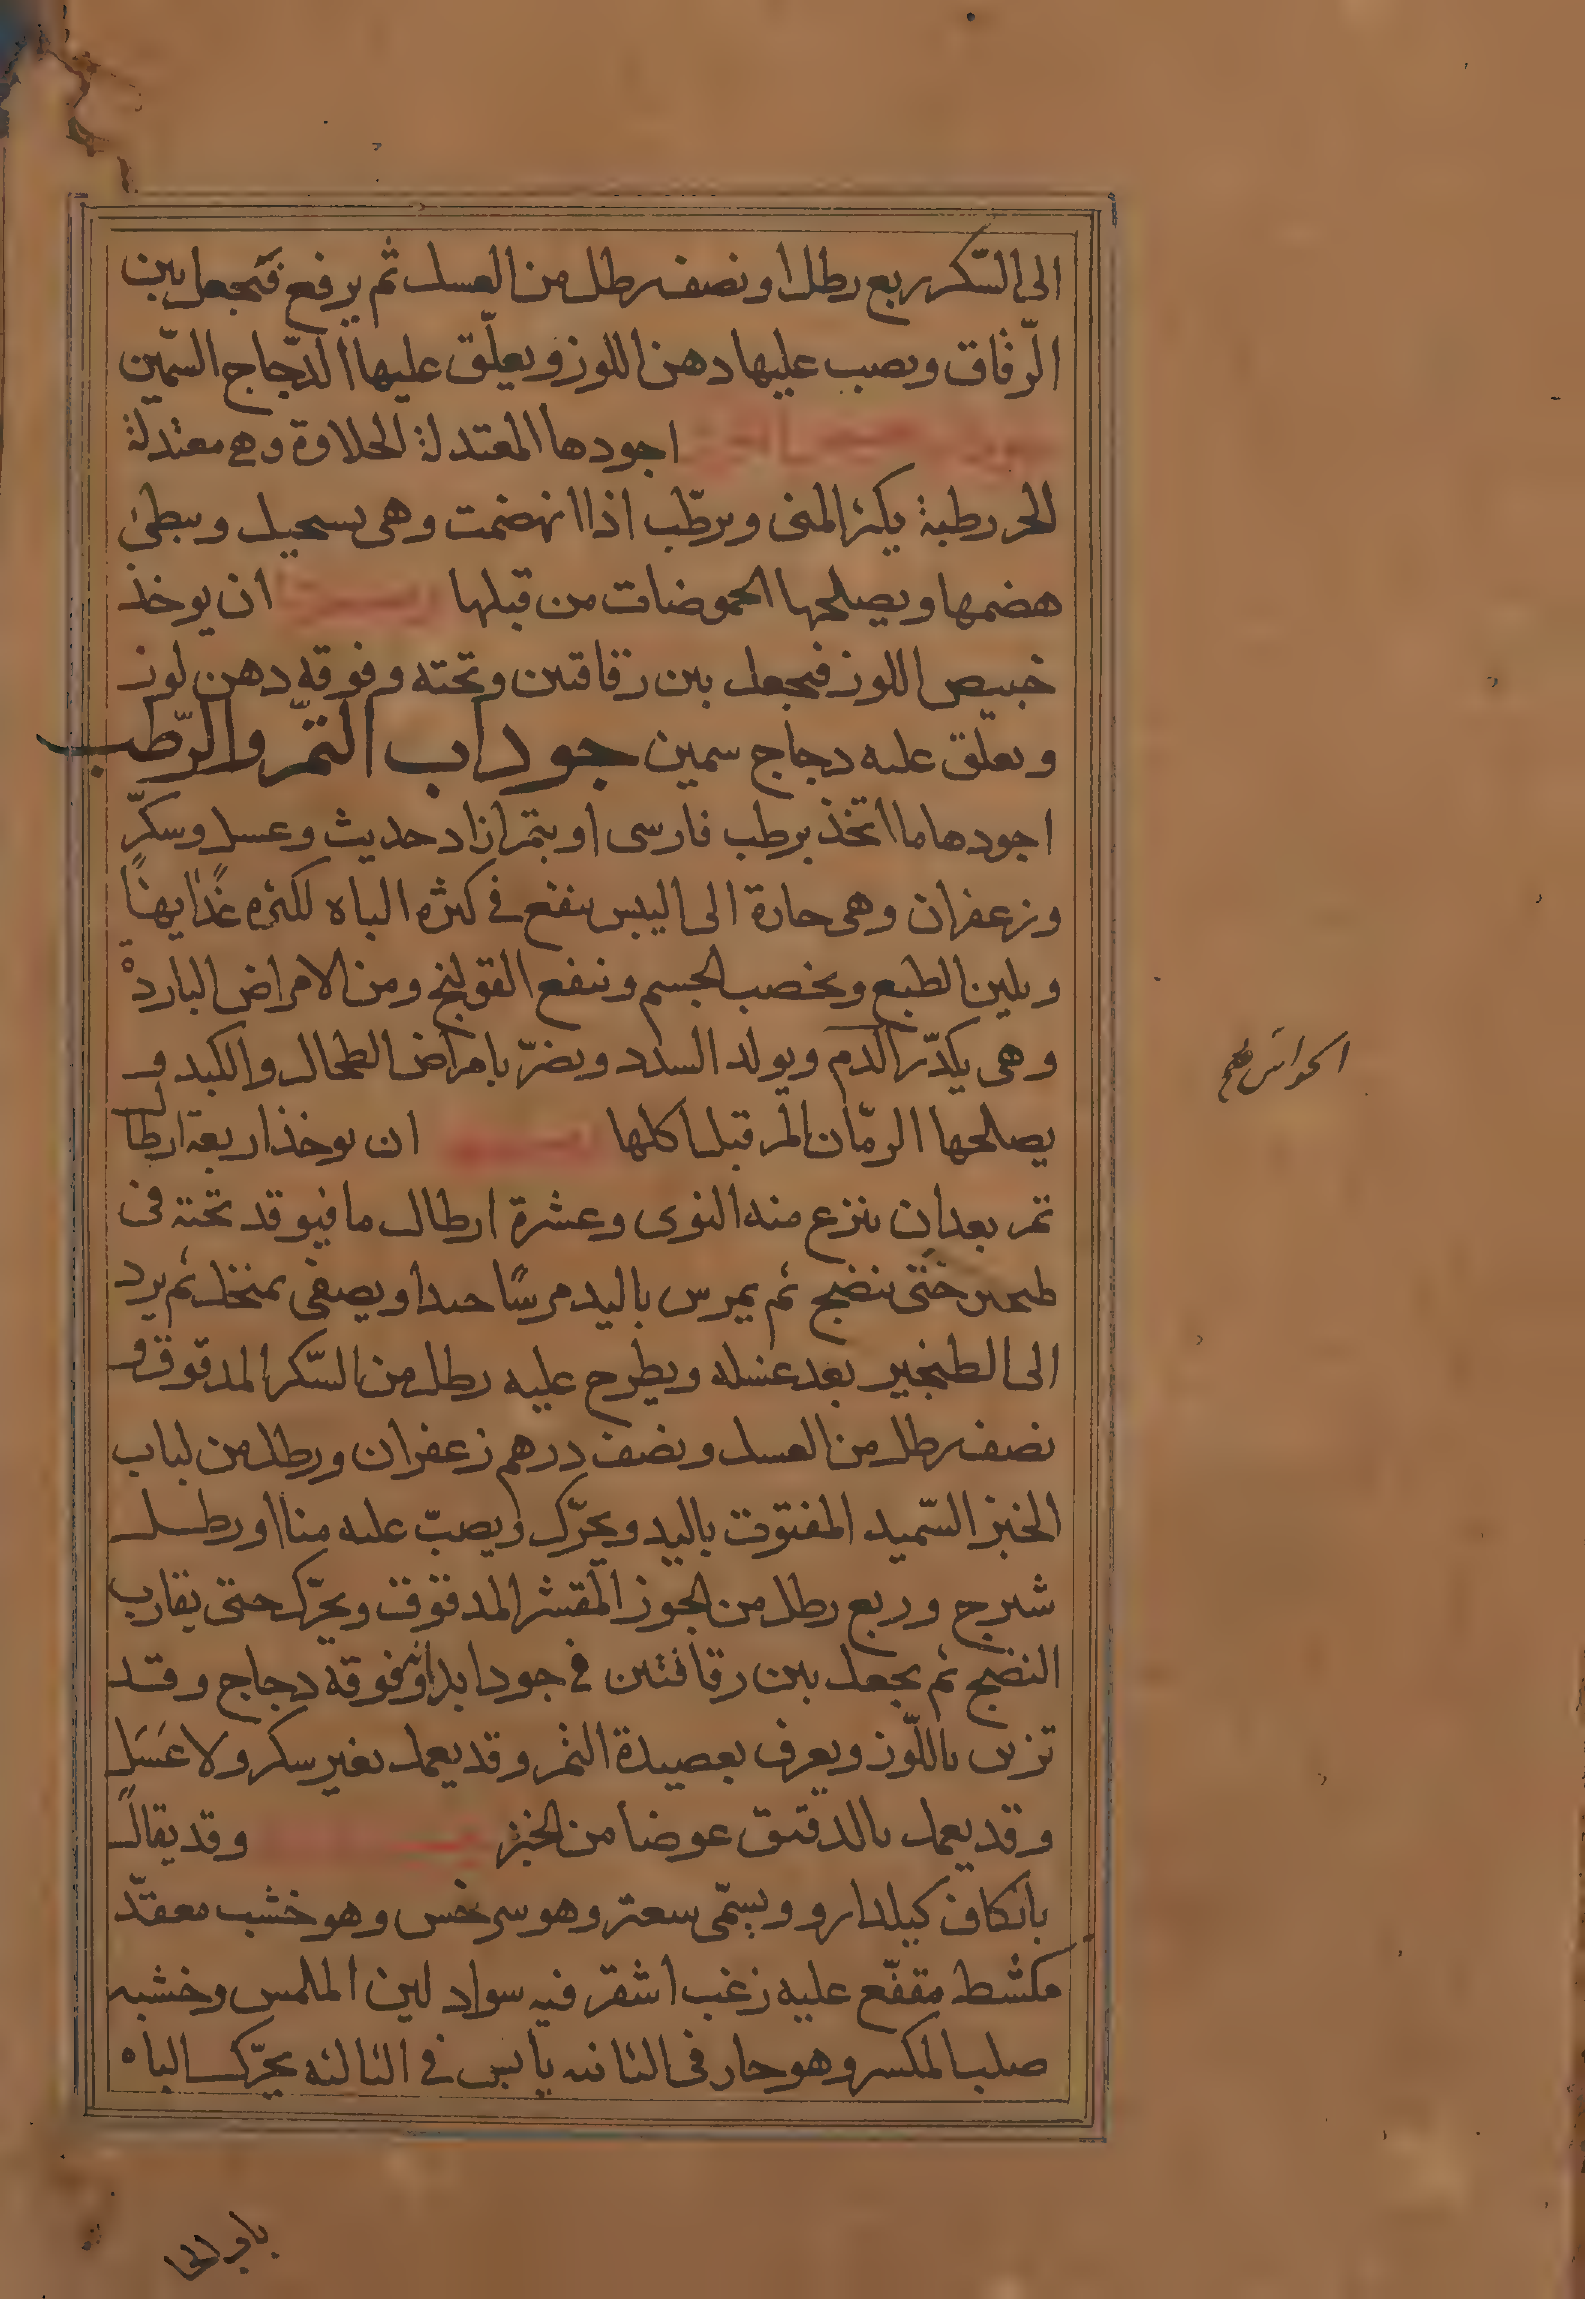 الى السّكر ربع رطل او نصف رطل من العسل ثم يرفع فيجعل بين
الرّقاق ويصب عليها دهن اللوز ويعلّق عليها الدّجاج السّمين
اجودها المعتدلة الحلاوة وهى معتدلة
الحر رطبة يكثر المنى ويرطّب اذا انهضمت وهى يستحيل ويبطئ
هضمها ويصلحها الحموضات من قبلها ان يوخذ
خبيص اللوز فيجعل بين رقاقتين وتحته وفوقه دهن لوز
ويعلق عليه دجاج سمين جوداب التمّر والرّطب
اجودها ما اتخذ برطب فارسى او بتمر ازاد حديث وعسل وسكّر
وزعفران وهى حارة الى اليبس ينفع فى كثرة الباه لكثرة غذايهنا
ويلين الطبع ويخصب الجسم وينفع القولنج ومن الامراض الباردة
وهى يكدّر الدم ويولد السدد ويضرّ بامراض الطحال والكبد و
يصلحها الرمّان المر قبل اكلها ان يوخذ اربعة ارطال
تمر بعد ان ينزع منه النوى وعشرة ارطال ما فيوقد تحته فى
طنجير حتى ينضج ثم يمرس باليد مرسًا جيدا ويصفى بمنخل ثم يرد
الى الطنجير بعد غسله ويطرح عليه رطل من السّكر المدقوق و
نصف رطل من العسل ونصف درهم زعفران ورطل من لباب
الخبز السّميد المفتوت باليد ويحرّك ويصبّ عليه منا او رطل
شيرج وربع رطل من الجوز المقشر المدقوق ويحرّك حتى يقارب
النضج ثم يجعل بين رقاقتين فى جودابدان وفوقه دجاج وقد
تزين باللّوز ويعرف بعصيدة التمر وقد يعمل بغير سكر ولا عَسَل
وقد يعمل بالدقيق عوضاً من الخبز وقد يقال
بالكاف كيلدارو ويسمّى سعتر وهو سرخس وهو خشب معقّد
مكشط مقفّع عليه زغب اشقر فيه سواد لين الملمس وخشبه
صلب المكسر وهو حار فى الثانيه يابس فى الثالثه يحرّك الباه